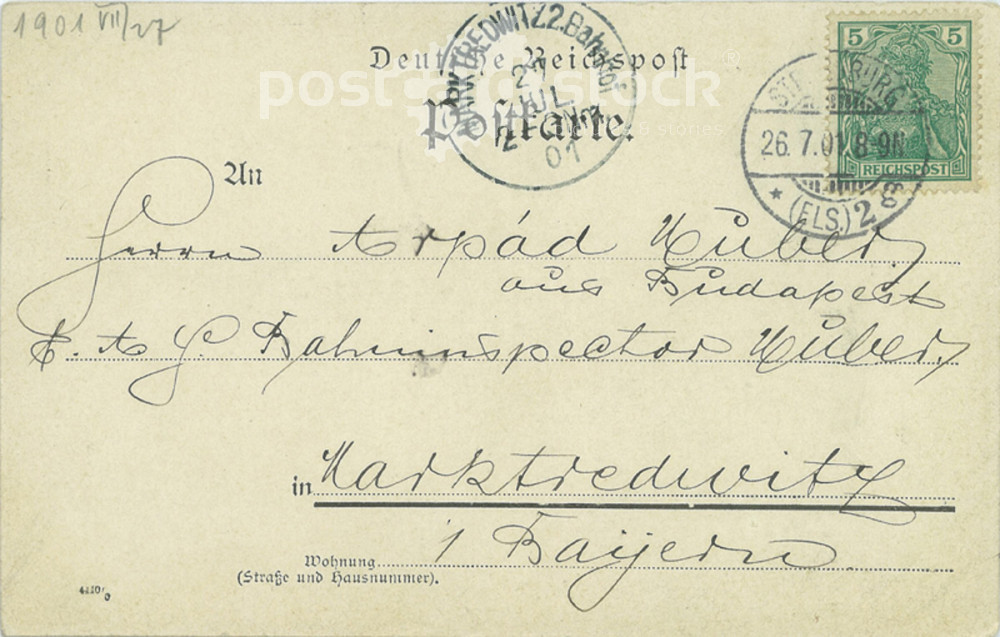 1901 VII/27
Deutsche Reichspost
Postkarte.
MARKTREDWITZ 2. Bahnhof
27
JUL.
01
5 5
REICHSPOST
26. 7. 01 8-9N
(ELS.) 2
postcardstock
& stories
An
Herrn Arpád Huber,
aus Budapest
p. A. G. Bahninspector Huber,
in Marktredwitz
i Bayern
Wohnung
(Straße und Hausnummer).